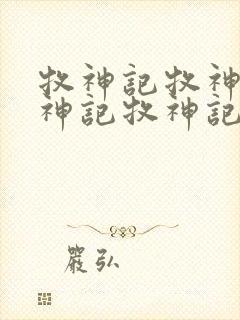 牧神記牧神
神記牧神記
嚴弘